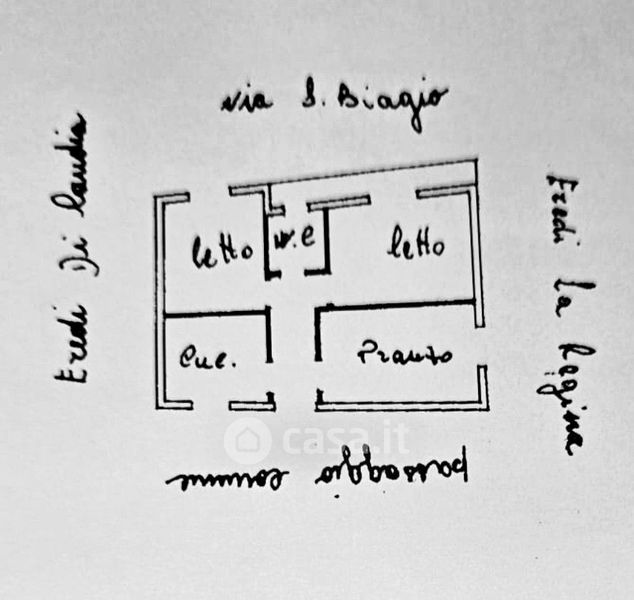 via S. Biagio
Eredi Di Claudia
Eredi La Regina
letto
w.c
letto
Cuc.
Pranzo
casa.it
passaggio comune